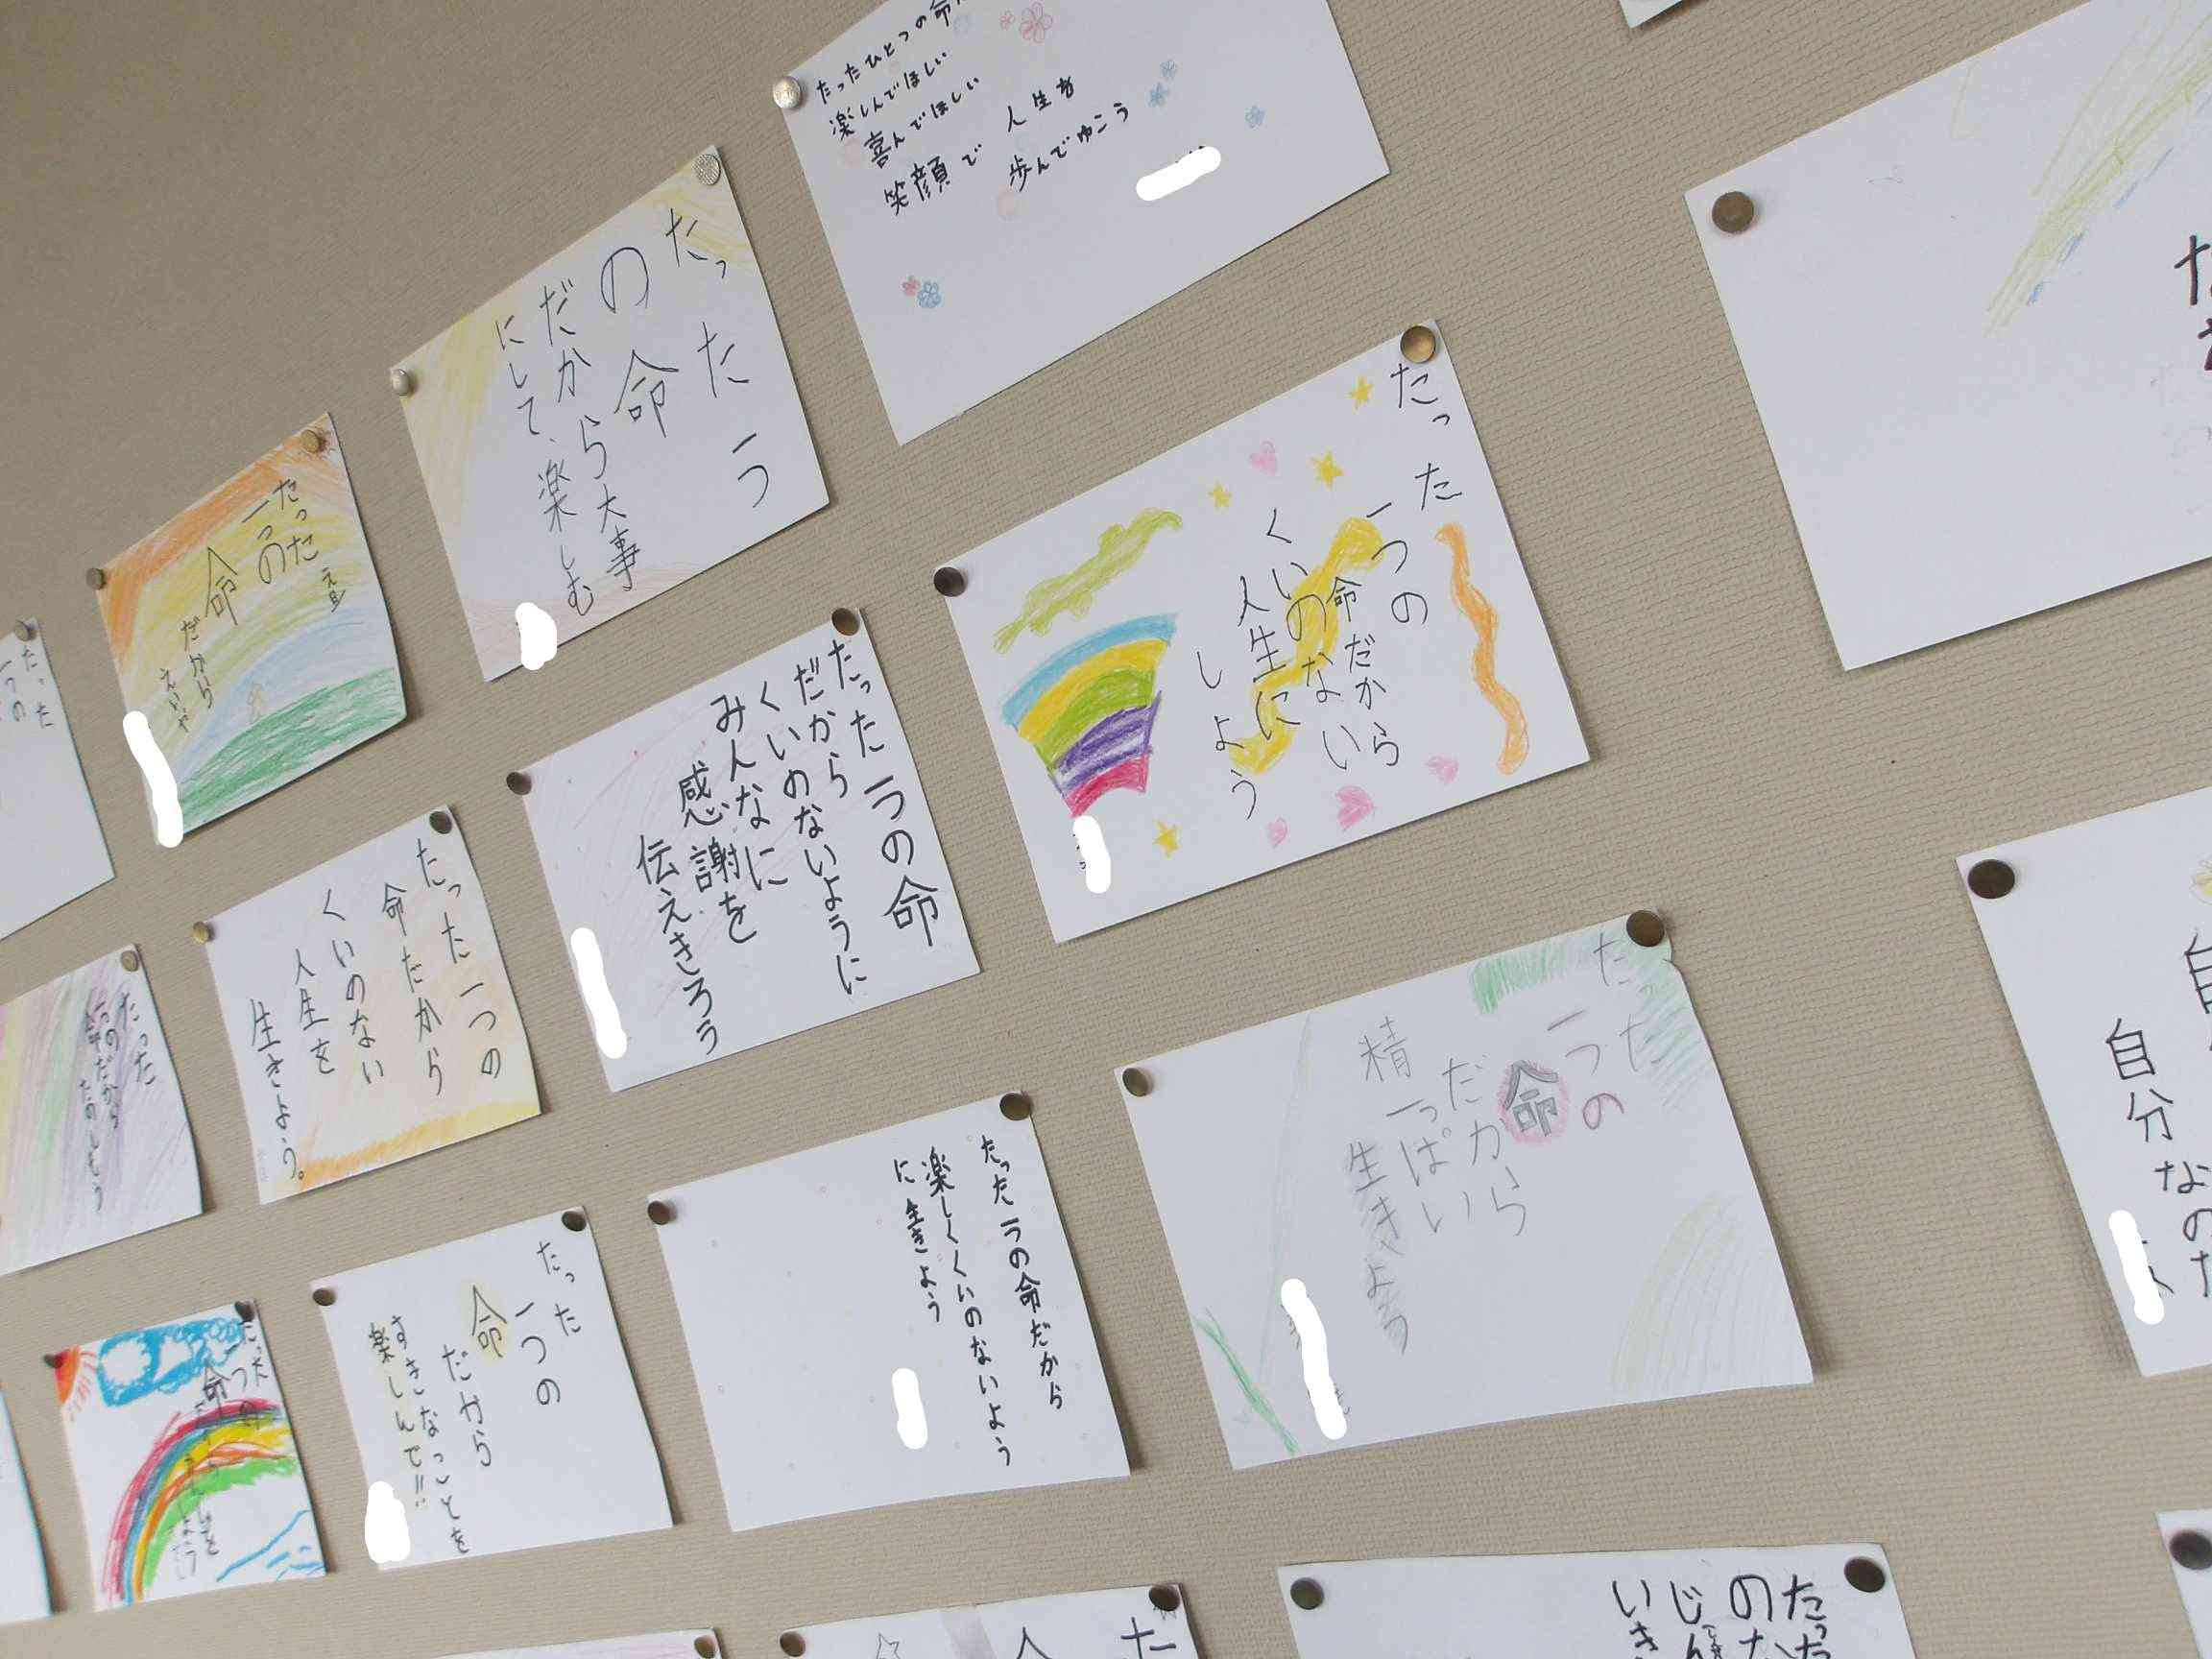 たったひとつの命
楽しんでほしい
喜んでほしい
笑顔で
人生を
歩んでゆこう
たった一つ
の命
だから大事
にして、楽しむ
たった
一つの
命
だから
たった
一つの
たった
一つの
命だから
くいのない
人生に
しよう
たった一つの命
だから
くいのないように
みんなに
感謝を
伝えきろう
たった一つの
命だから
くいのない
人生を
生きよう。
たった
一つの
命だから
たのしもう
たった
一つの
命
だから
精一っぱい
生きよう
たった一つの命だから
楽しくくいのないよう
に生きよう
たった
一つの
命
だから
すきなっことを
楽しんで!!
たった
一つの
命
自分なの
たった
のた
じん
いき
た
人